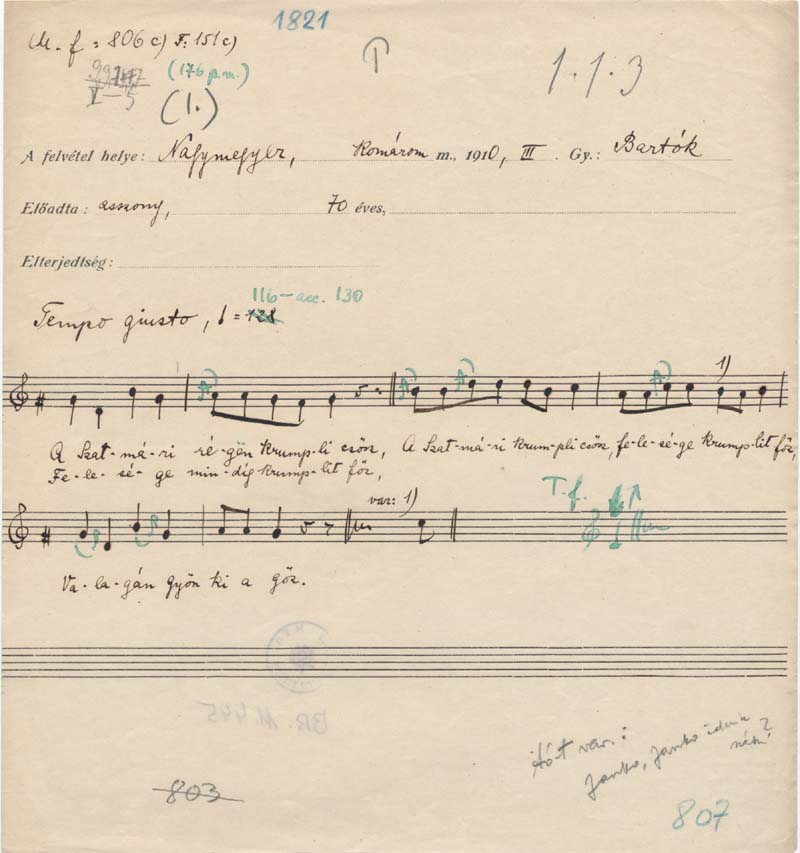 1821
M. f = 806 c) F: 151 c)
(176 p.m.)
1.1.3
V–5
(1.)
A felvétel helye: Nagymegyer, Komárom m., 1910, III. Gy.: Bartók
Előadta: asszony, 70 éves,
Elterjedtség:
116–acc. 130
Tempo giusto, = 128
1)
A Szat-má-ri ré-gën krump-li csősz, A Szat-má-ri krum-pli csősz, fe-le-sé-ge krumplit főz,
Fe-le-sé-ge min-dig krump-lit főz,
var: 1)
T.f.
Va-la-gán gyön ki a gőz.
BR. M 445
Tót var.:
Janko, Janko
803
807